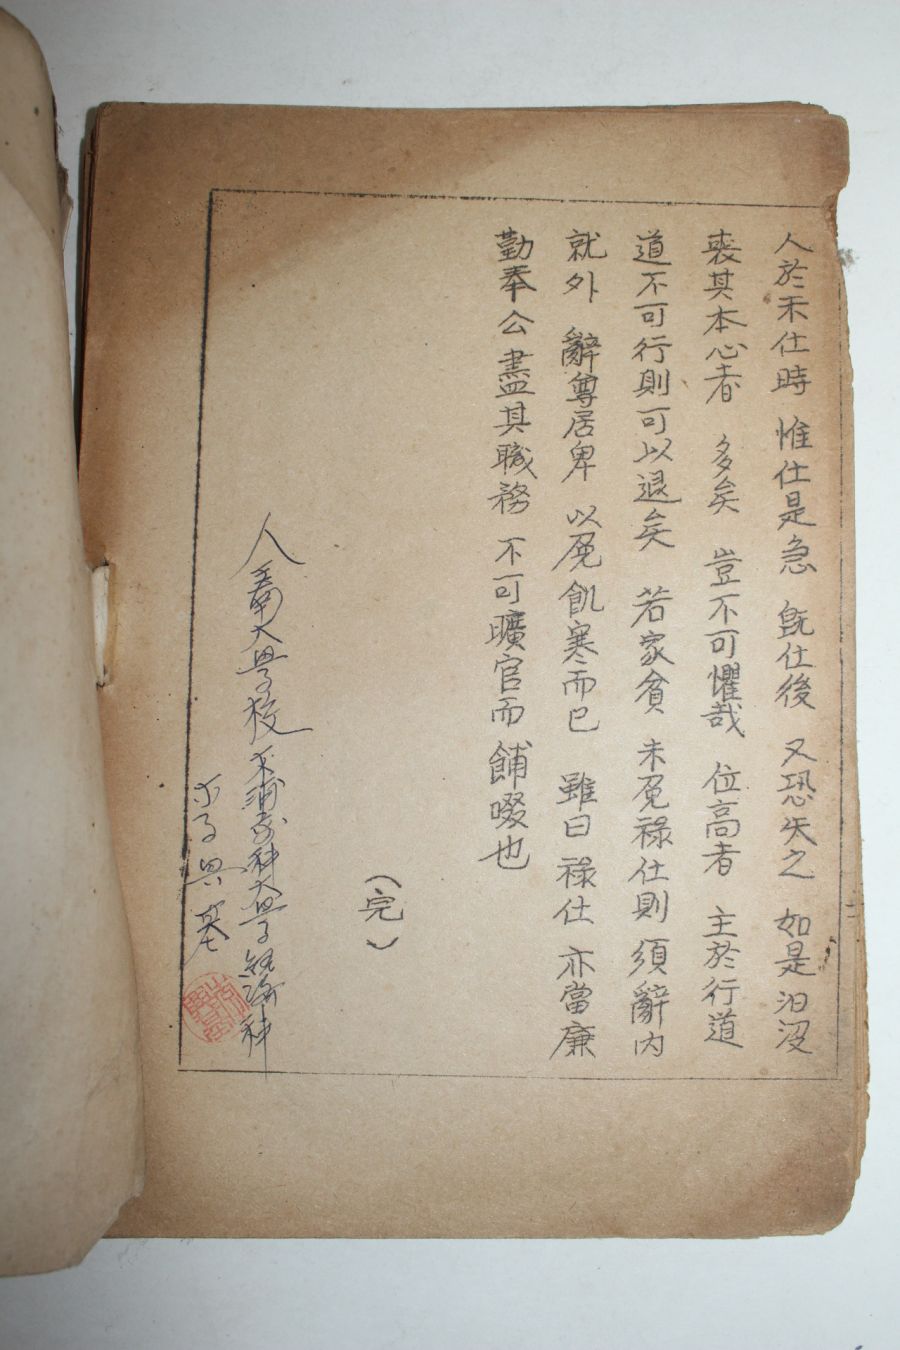 人於未仕時 惟仕是急 旣仕後 又恐失之 如是汨沒
喪其本心者 多矣 豈不可懼哉 位高者 主於行道
道不可行則可以退矣 若家貧 未免祿仕則 須辭內
就外 辭尊居卑 以免飢寒而已 雖曰 祿仕 亦當廉
勤奉公 盡其職務 不可曠官而 餔啜也
(完)
大學校 科大學 經濟科